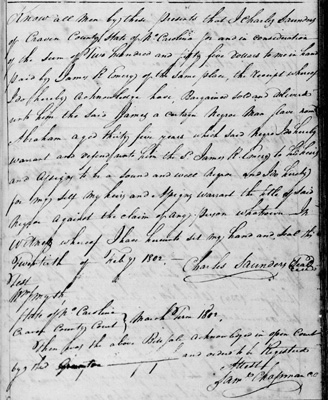 Know all Men by these Presents that I Charles Saunders
of Craven County State of No. Carolina for and in consideration
of the Sum of Two hundred and fifty five dollars to me in hand
paid by James H Emery of the Same place, the receipt whereof
I do hereby acknowledge have, Bargained sold and delivered
unto him the said James a certain Negroe Man slave named
Abraham aged thirty five years which said Negroe I do hereby
warrant and defend, unto him the Sd. James H Emery his heirs
and Assigns to be a sound and well Negroe and I do hereby
for myself my heirs and Assigns warrant the title of said
Negroe Against the claim of any person whatsoever In
Witness whereof I have hereunto set my hand and seal this
Twentieth of Feby. 1802. Charles Saunders
Test
Wm. Smyth
State of No. Carolina
Craven County Court March Term 1802.
then was the above Bill Sale Acknowledged in open Court
by the and ordered to be Registered
Attest
Saml. Chapman CC